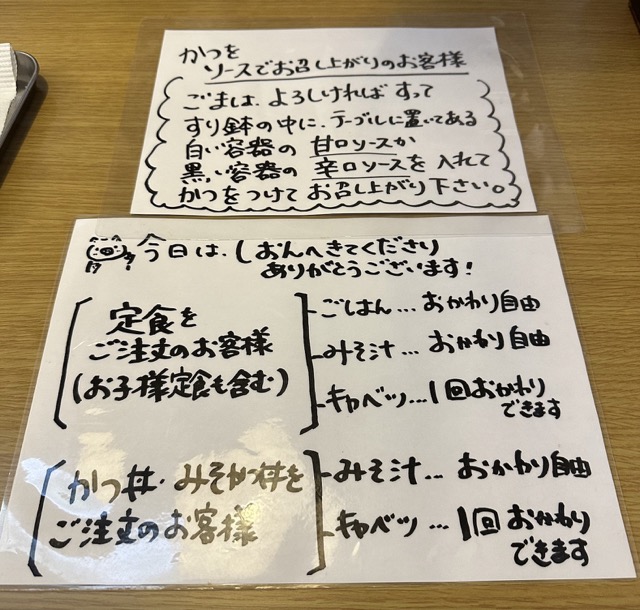 かつを
ソースでお召し上がりのお客様
ごまは、よろしければ すって
すり鉢の中に、テーブルに置いてある
白い容器の 甘口ソースか
黒い容器の 辛口ソースを 入れて
かつをつけて お召し上がり下さい。
今日は、しおんへきてくださり
ありがとうございます!
定食を
ご注文のお客様
(お子様定食も含む)
ごはん… おかわり自由
みそ汁… おかわり自由
キャベツ…1回おかわり
できます
かつ丼・みそかつ丼を
ご注文のお客様
みそ汁… おかわり自由
キャベツ…1回おかわり
できます